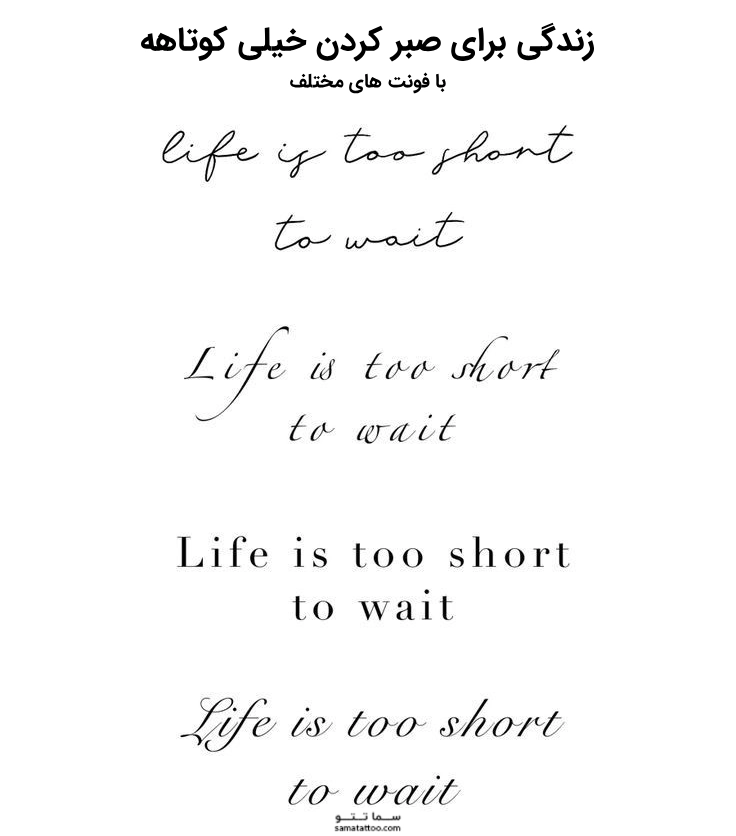 زندگی برای صبر کردن خیلی کوتاهه
با فونت های مختلف
life is too short
to wait
Life is too short
to wait
Life is too short
to wait
Life is too short
to wait
سـمـا تـتـو
samatattoo.com